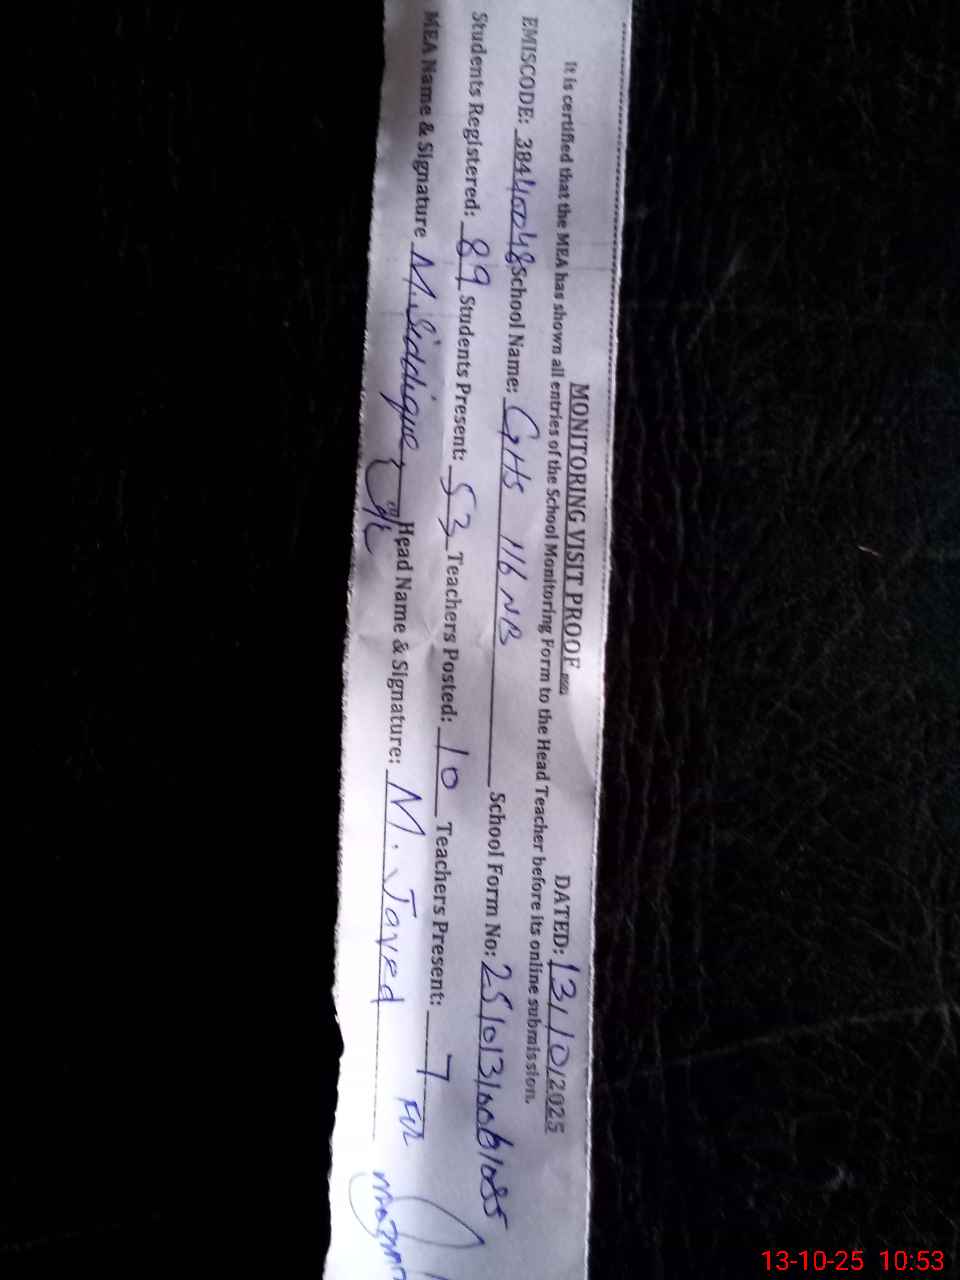 MONITORING VISIT PROOF DATED: 13/10/2025
It is certified that the MEA has shown all entries of the School Monitoring Form to the Head Teacher before its online submission.
EMISCODE: 38440048 School Name: GHS 116 NB School Form No: 251013/006/085
Students Registered: 89 Students Present: 53 Teachers Posted: 10 Teachers Present: 7
MEA Name & Signature M. Siddique Head Name & Signature: M. Javed
13-10-25 10:53